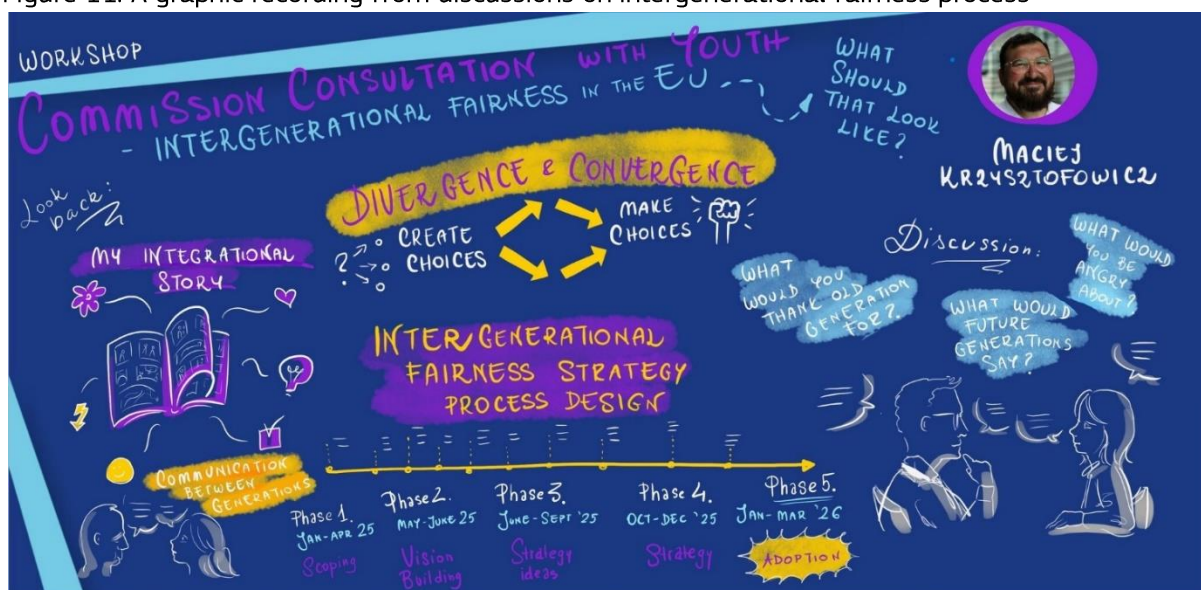 Figure 11: A graphic recording from discussions on intergenerational fairness process
WORKSHOP
COMMISSION CONSULTATION WITH YOUTH
- INTERGENERATIONAL FAIRNESS IN THE EU
WHAT
SHOULD
THAT LOOK
LIKE?
MACIEJ
KRZYSZTOFOWICZ
DIVERGENCE & CONVERGENCE
CREATE
CHOICES
MAKE
CHOICES
?
Look
back:
MY INTEGRATIONAL
STORY
COMMUNICATION
BETWEEN
GENERATIONS
INTERGENERATIONAL
FAIRNESS STRATEGY
PROCESS DESIGN
Phase 1.
JAN-APR 25
Scoping
Phase 2.
MAY-JUNE 25
Vision
Building
Phase 3.
JUNE-SEPT '25
Strategy
ideas
Phase 4.
OCT-DEC '25
Strategy
Phase 5.
JAN-MAR '26
ADOPTION
Discussion:
WHAT
WOULD YOU
THANK OLD
GENERATION
FOR?
WHAT WOULD
FUTURE
GENERATIONS
SAY?
WHAT WOULD
YOU BE
ANGRY
ABOUT?